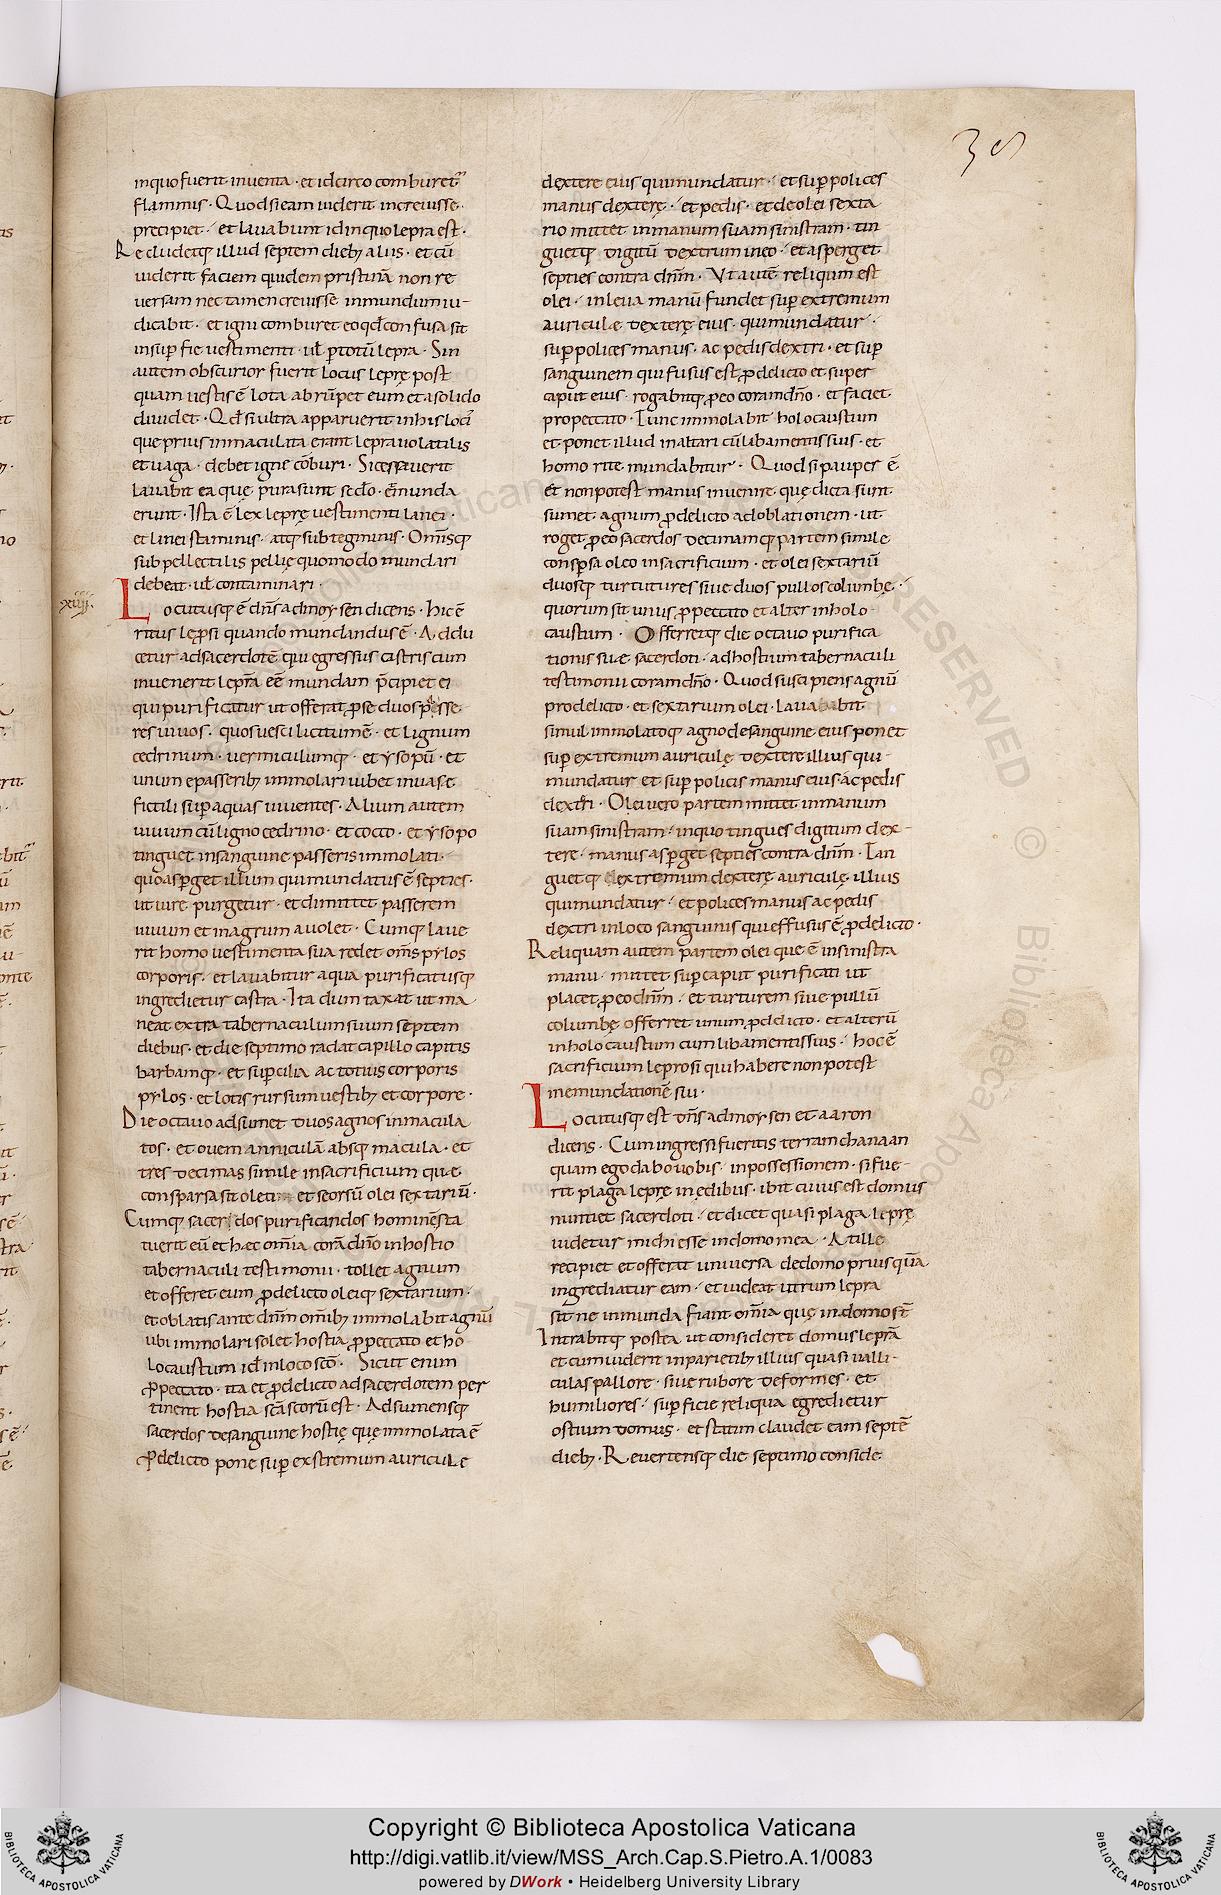 38
inquo fuerit inventa · et idcirco comburet᷑
flammis · Quod si eam viderit increvisse ·
precipiet · et lavabunt id inquo lepra est ·
Recludetq; illud septem dieb; aliis · et cũ
viderit faciem quidem pristinã non re
versam nec tamen crevisse inmundum iu-
dicabit · et igni comburet eo qđ confusa sit
insup̱ficie vestimenti · uł p̱ totũ lepra · Sin
autem obscurior fuerit locus leprę post
quam vestis ẽ lota abrũpet eum et a solido
dividet · Qđ si ultra apparuerit in his locis
que prius inmaculata erant lepra volatilis
et vaga · debet igne cõburi · Si cessaverit
lavabit ea quę pura sunt scđo · et munda
erunt · Ista ẽ lex leprę vestimenti lanei ·
et linei staminis · atq; subteginis · Omnisq;
subpellectilis pellię quomodo mundari
debeat · uł contaminari ·
xiiii·
Locutusq; ẽ dñs ad moysen dicens · hic ẽ
ritus lep̱si quando mundandus ẽ · Addu
cetur ad sacerdotẽ qui egressus castris cum
invenerit leprã eẽ mundam p̃cipiet ei
qui purificatur ut offerat ꝓ se duos passe
res vivos · quos vesci licitum ẽ · et lignum
cedrinum · vermiculumq; · et ysopũ · et
unum e passerib; immolari iubet in vase
fictili sup̱ aquas viventes · Alium autem
vivum cũ ligno cedrino · et cocco · et ysopo
tinguet in sanguine passeris immolati ·
quo asp̱get illum qui mundatus ẽ septies ·
ut iure purgetur · et dimittet passerem
vivum et in agrum avolet · Cumq; lave
rit homo vestimenta sua redet oms pylos
corporis · et lavabitur aqua purificatusq;
ingredietur castra · Ita dum taxat ut ma
neat extra tabernaculum suum septem
diebus · et die septimo radat capillo capitis
barbamq; · et sup̱cilia ac totius corporis
pylos · et lotis rursum vestib; et corpore ·
Die octavo adsumet duos agnos inmacula
tos · et ovem anniculã absq; macula · et
tres decimas simile in sacrificium que
consparsa sit oleti et seorsũ olei sextariũ ·
Cumq; sacerdos purificandos hominẽ sta
tuerit eũ et hæc omĩa corã dño in hostio
tabernaculi testimonii · tollet agnum
et offeret eum ꝓ delicto oleiq; sextarium ·
et oblatis ante dñm omĩb; immolabit agnũ
ubi immolari solet hostia ꝓ peccato et ho
locaustum id ẽ in loco scõ · Sicut enim
ꝓ peccato · ita et ꝓ delicto ad sacerdotem per
tinent hostia scã scorũ est · Adsumensq;
sacerdos de sanguine hostię quę immolata ẽ
ꝓ delicto pone sup̱ exstremum auricule
dextere eius qui mundatur · et sup̱ polices
manus dexterę · et pedis · et de olei sexta
rio mittet in manum suam sinistram · tin
guetq; digitũ dextrum in eo · et asperget
septies contra dñm · Ut autẽ reliqum est
olei · in leva manũ fundet sup̱ extremum
auriculæ dexterę eius · qui mundatur ·
sup̱ polices manus · ac pedis dextri · et sup̱
sanguinem qui fusus est ꝓ delicto et super
caput eius · rogabitq; ꝓ eo coram dño · et faciet
pro peccato · Tunc immolabit holocaustum
et ponet illud in altari cũ libamentis suis · et
homo rite mundabitur · Quod si pauper ẽ
et non potest manus invenire quę dicta sunt
sumet agnum ꝓ delicto ad oblationem · ut
roget ꝓ eo sacerdos decimamq; partem simile
consp̱sa oleo in sacrificium · et olei sextariũ
duosq; turtutures sive duos pullos columbę ·
quorum sit unus ꝓ peccato et alter in holo
caustum · Offerretq; die octavo purifica
tionis suæ sacerdoti · ad hostium tabernaculi
testimonii coram dño · Quod suscipiens agnũ
pro delicto · et sextarium olei · lavababit
simul immolatoq; agno de sanguine eius ponet
sup̱ extremum auriculę dextere illius qui
mundatur et sup̱ policis manus eius ac pedis
dextri · Olei vero partem mittet in manum
suam sinistram · in quo tingues digitum dex-
tere · manus asp̱get septies contra dñm · Tan
guetq; extremum dexterę auriculę illius
qui mundatur · et polices manus ac pedis
dextri in loco sanguinis qui effusus ẽ ꝓ delicto ·
Reliquam autem partem olei que ẽ in sinistra
manu · mittet sup̱ caput purificati ut
placet ꝓ eo dñm · et turturem sive pullũ
columbę offerret unum ꝓ delicto · et alterũ
in holocaustum cum libamentis suis · hoc ẽ
sacrificium leprosi qui habere non potest
in emundationẽ sui ·
Locutusq; est dñs ad moysen et aaron
dicens · Cum ingressi fueritis terram chanaan
quam ego dabo vobis · in possessionem · si fue-
rit plaga leprę in edibus · ibit cuius est domus
nuntiet sacerdoti · et dicet quasi plaga leprę
videtur michi esse in domo mea · At ille
recipiet et offerat universa de domo prius quã
ingrediatur eam · et videat utrum lepra
sit ne inmunda fiant omĩa quę in domo st̃
Intrabitq; postea ut consideret domus leprã
et cum viderit in parietib; illius quasi valli-
culas pallore · sive rubore deformes · et
humiliores · sup̱ficie reliqua egredietur
ostium domus · et statim claudet eam septẽ
dieb; · Revertensq; die septimo conside
Copyright © Biblioteca Apostolica Vaticana
http://digi.vatlib.it/view/MSS_Arch.Cap.S.Pietro.A.1/0083
powered by DWork • Heidelberg University Library
BIBLIOTECA APOSTOLICA VATICANA
BIBLIOTECA APOSTOLICA VATICANA